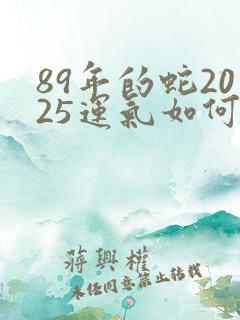 89年的蛇20
25運氣如何
蔣興權
未任同意禁止转载